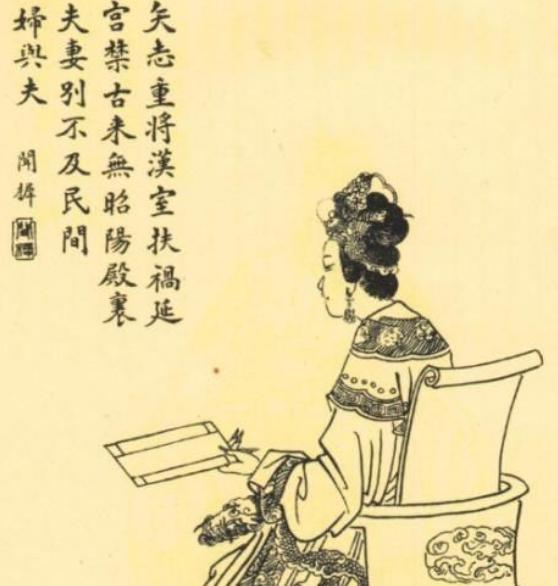 矢志重将漢室扶禍延
宮禁古来無昭陽殿裏
夫妻別不及民間
婦與夫
闻樨